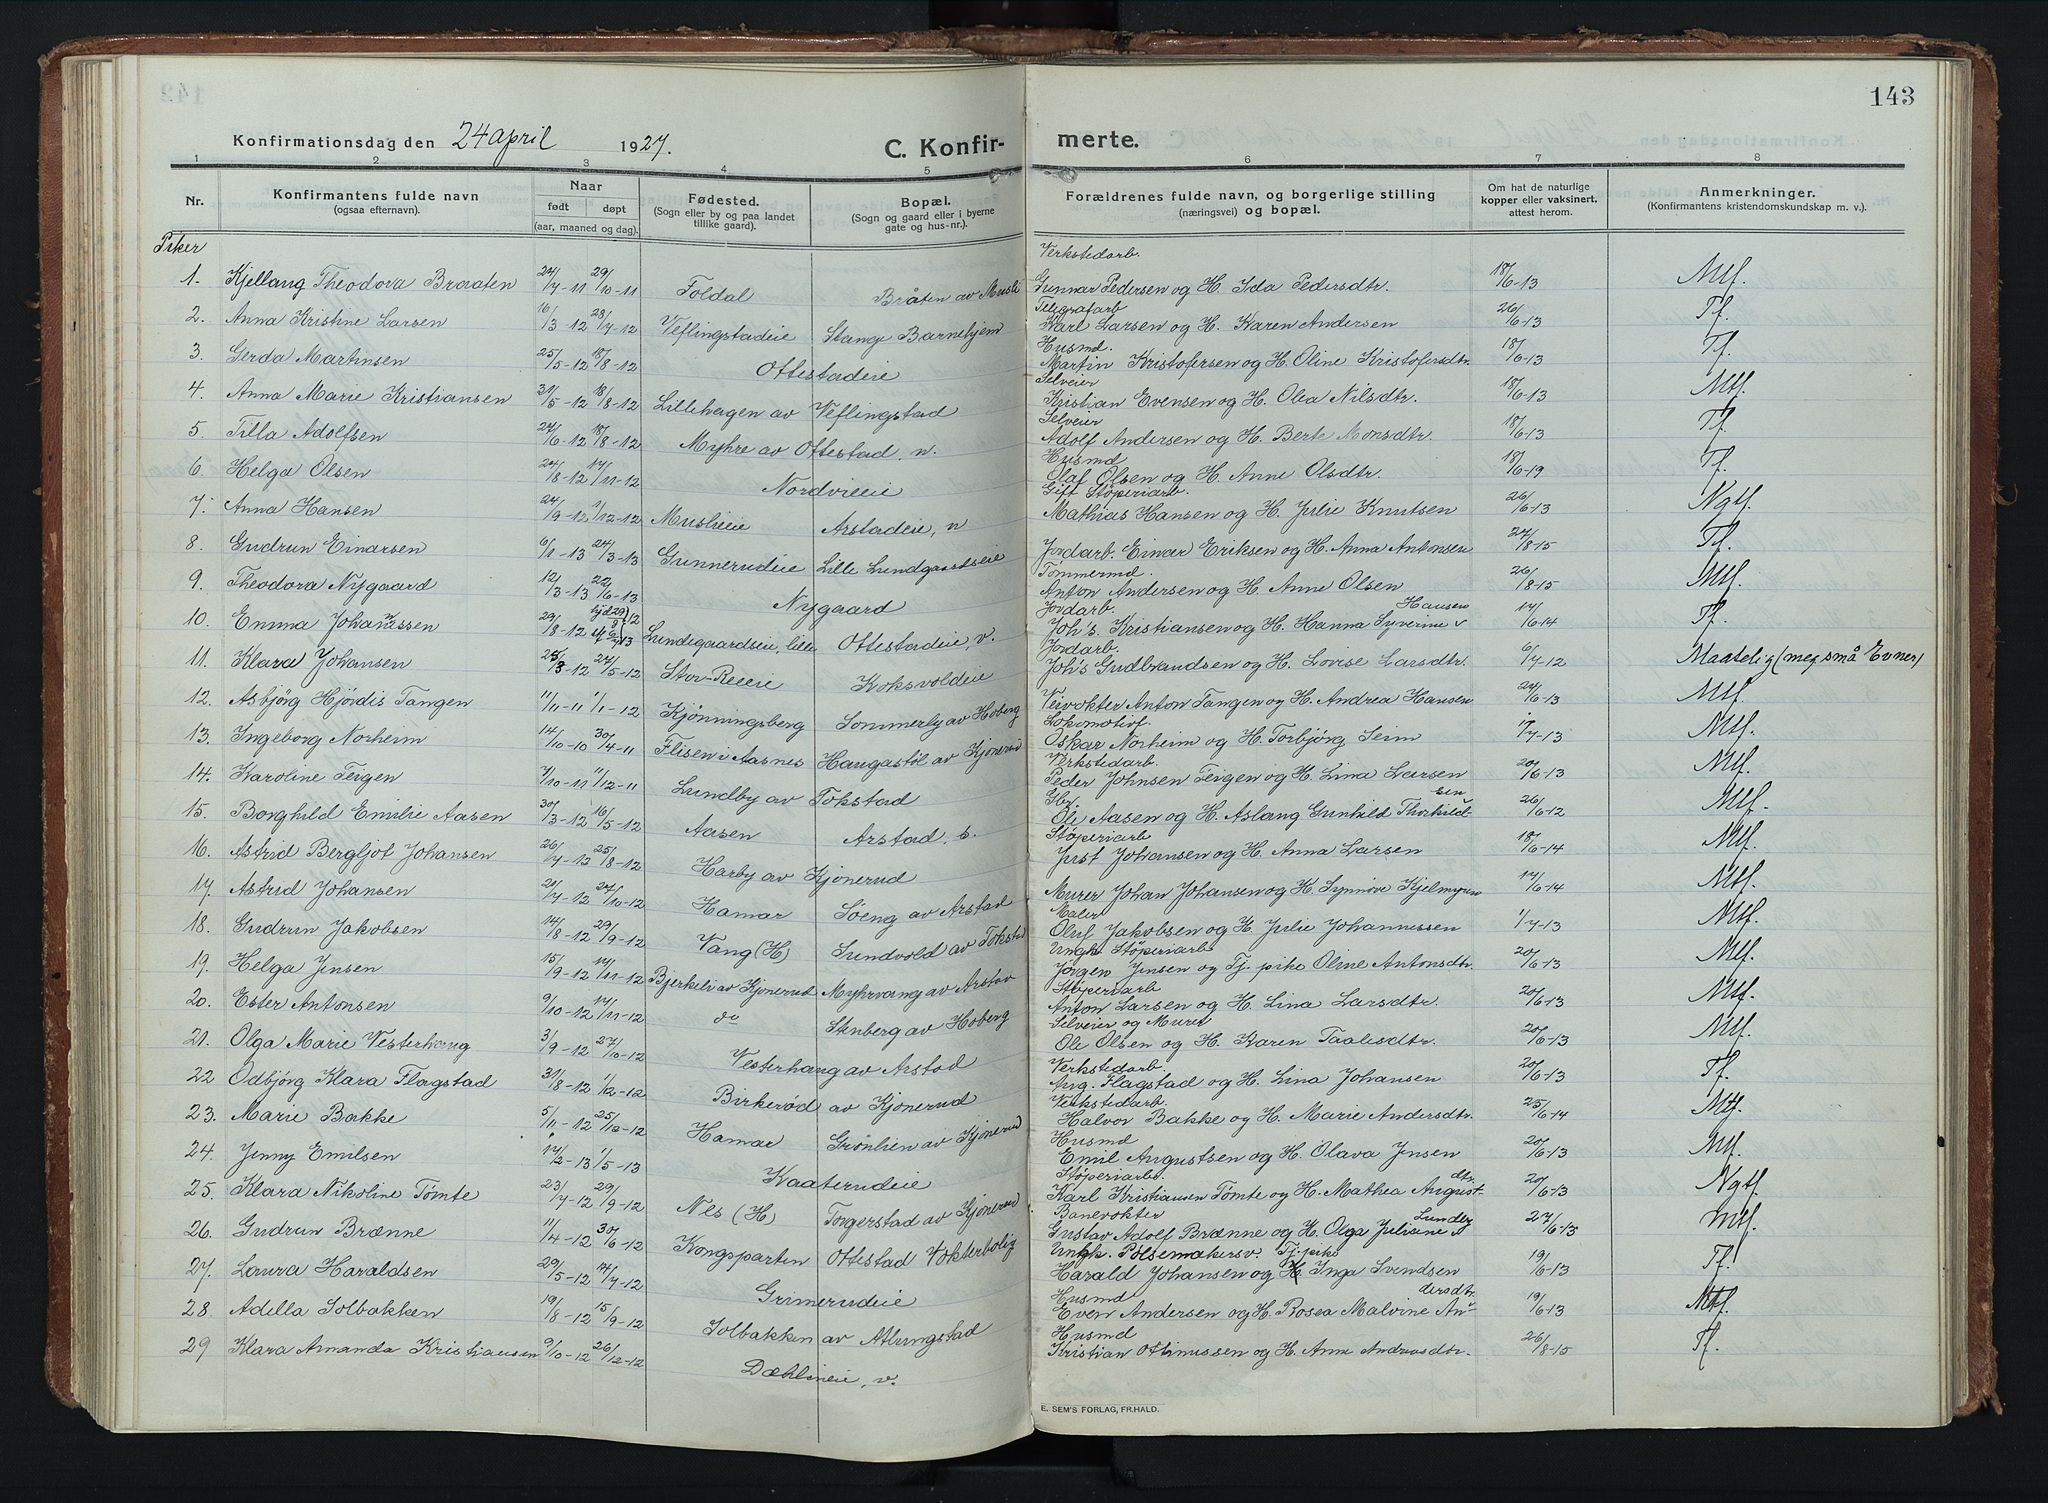 142
143
Konfirmationsdag den 24 april 1927.
C. Konfir-
merte.
1 2 3 4 5 6 7 8
Nr.
Konfirmantens fulde navn
(ogsaa efternavn).
Naar
født døpt
(aar, maaned og dag).
Fødested.
(Sogn eller by og paa landet
tillike gaard).
Bopæl.
(Sogn og gaard eller i byerne
gate og hus-nr.).
Forældrenes fulde navn, og borgerlige stilling
(næringsvei) og bopæl.
Om hat de naturlige
kopper eller vaksinert,
attest herom.
Anmerkninger.
(Konfirmantens kristendomskundskap m. v.).
Piker
Verkstedarb.
1. Kjellaug Theodora Braaten 24/7-11 29/10-11 Foldal Bråten av Musli Gunnar Pedersen og H. Ida Pedersdtr. 18/6-13 Mtf.
Telegrafarb
2. Anna Kristine Larsen 16/3-12 28/7-12 Veflingstadeie Stange Barnehjem Karl Larsen og H. Karen Andersen 26/6-13 Tf.
Husmd.
3. Gerda Martinsen 25/5-12 18/8-12 Ottestadeie Martin Kristofersen og H. Oline Kristofersdtr. 18/6-13 Tf.
Selveier
4. Anna Marie Kristiansen 31/5-12 18/8-12 Lillehagen av Veflingstad Kristian Evensen og H. Olea Nilsdtr. 18/6-13 Mtf.
Selveier
5. Tilla Adolfsen 24/6-12 18/8-12 Myhre av Ottestad, n. Adolf Andersen og H. Berte Monsdtr. 18/6-13 Tf.
Husmd
6. Helga Olsen 24/8-12 17/11-12 Nordvieie Olaf Olsen og H. Anne Olsdtr. 18/6-19 Tf.
Gift Støperiarb.
7. Anna Hansen 24/9-12 1/12-12 Muslieie Arstadeie, n Mathias Hansen og H. Julie Knutsen 26/6-13 Ngtf.
8. Gudrun Einarsen 6/1-13 24/3-13 Gunnerudeie Lille Lundgaardseie Jordarb. Einar Eriksen og H. Anna Antonsen 27/8-15 Tf.
Tømmermd.
9. Theodora Nygaard 12/3-13 22/6-13 Nygaard Anton Andersen og H. Anne Olsen 26/8-15 Mtf.
Jordarb. Hansen
10. Emma Johannessen 29/8-12 Lundsgaardseie, lille Ottestadeie, v. Joh's. Kristiansen og H. Hanna Syverine v 17/6-14 Tf.
Jordarb.
11. Klara Johansen 25/3-12 27/5-12 Stor-Reeie Koksvoldeie Joh's Gudbrandsen og H. Lovise Larsdtr. 6/7-12 Maatelig (meg. små Evner)
12. Asbjørg Hjørdis Tangen 11/11-11 1/1-12 Kjønningsberg Sommerby av Hoberg Veivokter Anton Tangen og H. Andrea Hansen 24/6-13 Mtf.
Lokomotivf.
13. Ingeborg Norheim 14/10-10 30/4-11 Flisen i Aasnes Haugastøl av Kjonerud Oskar Norheim og H. Torbjørg Seim 17/7-13 Mtf.
Verkstedarb.
14. Karoline Teigen 7/10-11 11/12-11 Lundby av Tokstad Peder Johnsen Teigen og H. Lina Larsen 20/6-13 Mtf.
Gbr. sen
15. Borghild Emilie Aasen 30/3-12 16/5-12 Aasen Arstad, s. Ole Aasen og H. Aslaug Gunhild Thorkild- 26/6-12 Mtf.
Støperiarb
16. Astrid Bergljot Johansen 26/7-13 25/8-12 Harby av Kjonerud Just Johansen og H. Anna Larsen 18/6-14 Mtf.
17. Astrid Johansen 21/7-12 27/10-12 Hamar Soeng av Arstad Murer Johan Johansen og H. Synnøve Kjelmyren 17/6-14 Mtf.
Maler
18. Gudrun Jakobsen 14/8-12 29/9-12 Vang (H) Sundvold av Tokstad Oluf Jakobsen og H. Julie Johannessen 1/7-13 Mtf.
Ungk. Støperiarb
19. Helga Jensen 15/9-12 17/11-12 Bjerkeli av Kjonerud Myhrvang av Arstad Jørgen Jensen og Tj. pike Oline Antonsdtr. 20/6-13 Mtf.
Støperiarb
20. Ester Antonsen 9/10-12 17/11-12 do Stenberg av Hoberg Anton Larsen og H. Lina Larsdtr. 20/6-13 Mtf.
Selveier og Murer
21. Olga Marie Vesterhaug 3/9-12 27/10-12 Vesterhaug av Arstad Ole Olsen og H. Karen Taalisdtr. 20/6-13 Mtf.
Verkstedarb.
22 Odbjørg Klara Flagstad 31/8-12 1/12-12 Birkerød av Kjonerud Aug. Flagstad og H. Lina Johansen 20/6-13 Tf.
Verkstedarb.
23. Marie Bakke 5/11-12 25/12-12 Hamar Grønlien av Kjonerud Halvor Bakke og H. Marie Andersdtr. 25/6-14 Mtf.
Husmd
24. Jenny Emilsen 17/2-13 1/5-13 Kaaterudeie Emil Augustsen og H. Olava Jensen 20/6-13 Mtf.
Støperiarb. dtr.
25. Klara Nikoline Tømte 23/7-12 29/9-12 Nes (H) Torgerstad av Kjonerud Karl Kristiansen Tømte og H. Mathea August- 20/6-13 Ngtf.
Banevokter Lundby
26. Gudrun Brænne 11/4-12 30/6-12 Kongsparten Ottestad Vokterbolig Gustav Adolf Brænne og H. Olga Juliane v 27/6-13 Mtf.
Ungk. Pølsemakersv. Tj. pike
27. Laura Haraldsen 29/5-12 14/7-12 Grimerudeie Harald Johansen og H Inga Svendsen 19/6-13 Tf.
Husmd dersdtr.
28. Adella Solbakken 19/8-12 15/9-12 Solbakken av Atlungstad Even Andersen og H. Rosea Malvine An- 19/6-13 Mtf.
Husmd
29 Klara Amanda Kristiansen 9/10-12 26/12-12 Dæhlineie, v. Kristian Othinussen og H. Anne Andreasdtr. 26/8-15 Tf.
E. SEM'S FORLAG, FR.HALD.